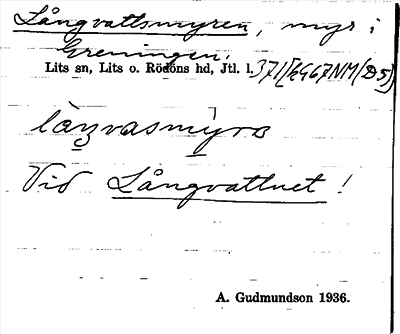 Långvattsmyren, myr i
Greningen.
Lits sn, Lits o. Rödöns hd, Jtl. l.
làŋvasmỳra
Vid Långvattnet!
A. Gudmundson 1936.